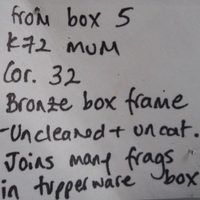 from box 5
K72 MUM
Cor. 32
Bronze box frame
-Uncleaned + uncat.
Joins many frags
in tupperware box